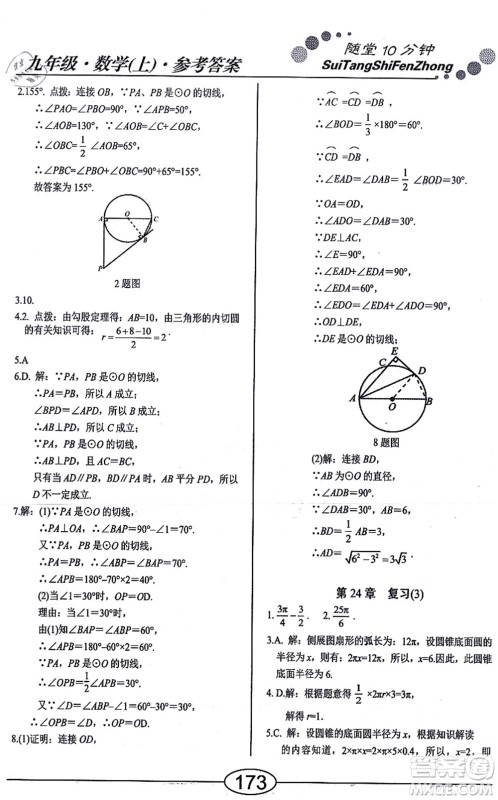 九年级·数学(上)·参考答案
随堂10分钟
SuiTangShiFenZhong
2.155°. 点拨：连接 OB，∵PA、PB 是⊙O 的切线，
∴∠PAO=∠PBO=90°，∵∠APB=50°，
∴∠AOB=130°，∵∠AOC=180°，∴∠BOC=50°，
∴∠OBC=1/2∠AOB=65°，
∴∠PBC=∠PBO+∠OBC=90°+65°=155°.
故答案为 155°.
A
O
C
B
P
2题图
3.10.
4.2. 点拨：由勾股定理得：AB=10，由三角形的内切圆
的有关知识可得：r=(6+8-10)/2=2.
5.A
6.D. 解：∵PA、PB 是⊙O 的切线，
∴PA=PB，所以 A 成立；
∠BPD=∠APD，所以 B 成立；
∴AB⊥PD，所以 C 成立；
∵PA、PB 是⊙O 的切线，
∴AB⊥PD，且 AC=BC；
只有当 AD∥PB，BD∥PA 时，AB 平分 PD，所以
D 不一定成立.
7.解：(1)∵PA、PB 是⊙O 的切线，
∴PA⊥OA，∴∠BAP=90°-∠1=70°.
又∵PA、PB 是⊙O 的切线，
∴PA=PB，∴∠BAP=∠ABP=70°，
∴∠APB=180°-70°×2=40°.
(2)当∠1=30°时，OP=OD.
理由：当∠1=30°时，
由(1)知∠BAP=∠ABP=60°，
∴∠APB=180°-60°×2=60°.
∵PA、PB 是⊙O 的切线，
∴∠OPB=1/2∠APB=30°.
又∵∠D=∠ABP-∠1=60°-30°=30°，
∴∠OPB=∠D，∴OP=OD.
8.(1)证明：连接 OD，
∵AC=CD=DB，
∴∠BOD=1/3×180°=60°，
∵CD=DB，
∴∠EAD=∠DAB=1/2∠BOD=30°.
∵OA=OD，
∴∠ADO=∠DAB=30°.
∵DE⊥AC，
∴∠E=90°，
∴∠EAD+∠EDA=90°，
∴∠EDA=60°，
∴∠EDO=∠EDA+∠ADO=90°，
∴OD⊥DE，
∴DE 是⊙O 的切线；
E
C
D
A
O
B
8题图
(2)解：连接 BD，
∵AB 为⊙O 的直径，
∴∠ADB=90°，
∵∠DAB=30°，AB=6，
∴BD=1/2AB=3，
∴AD=√(6²-3²)=3√3.
第24章 复习(3)
1.3π/4-3/2. 2.25π/6.
3.A. 解：侧展图扇形的弧长为：12π，设圆锥底面圆的
半径为 x，则有：2πx=12π，所以，x=6.因此，此圆锥
底面圆的半径为6.
4.D.解：根据题意得 1/2×2πr×3=2π，
解得 r=1.
5.C. 解：设圆锥的底面圆半径为 x，根据知识解读
的内容知道，2×π×x=2×π×5×0.4，所以，x=2，即
173